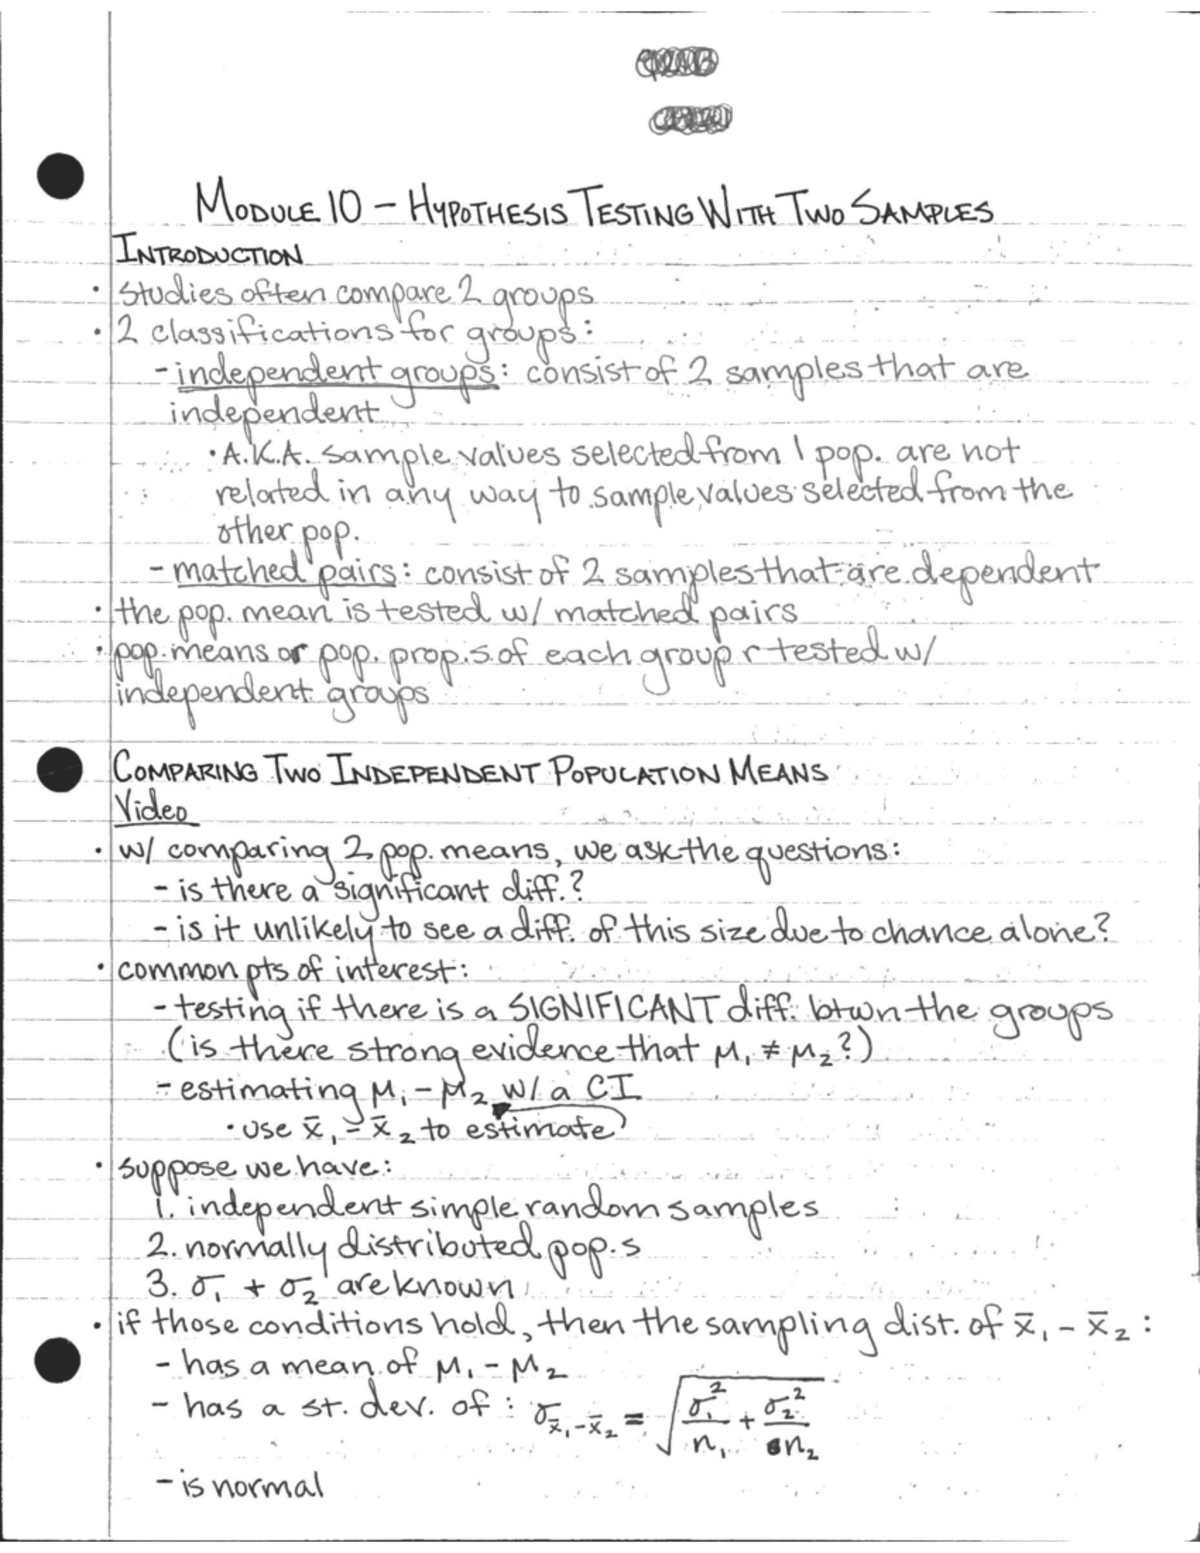 MODULE 10 – HYPOTHESIS TESTING WITH TWO SAMPLES
INTRODUCTION
• studies often compare 2 groups
• 2 classifications for groups:
- independent groups: consist of 2 samples that are
independent
• A.K.A. sample values selected from 1 pop. are not
related in any way to sample values selected from the
other pop.
- matched pairs: consist of 2 samples that are dependent
• the pop. mean is tested w/ matched pairs
• pop. means or pop. prop.s of each group r tested w/
independent groups
COMPARING TWO INDEPENDENT POPULATION MEANS
Video
• w/ comparing 2 pop. means, we ask the questions:
- is there a significant diff.?
- is it unlikely to see a diff. of this size due to chance alone?
• common pts of interest:
- testing if there is a SIGNIFICANT diff. btwn the groups
(is there strong evidence that μ₁ ≠ μ₂?)
- estimating μ₁ – μ₂ w/ a CI
• use x̄₁ – x̄₂ to estimate
• suppose we have:
1. independent simple random samples
2. normally distributed pop.s
3. σ₁ + σ₂ are known
• if those conditions hold, then the sampling dist. of x̄₁ – x̄₂ :
- has a mean of μ₁ – μ₂
- has a st. dev. of : σx̄₁–x̄₂ = √(σ₁²/n₁ + σ₂²/n₂)
- is normal